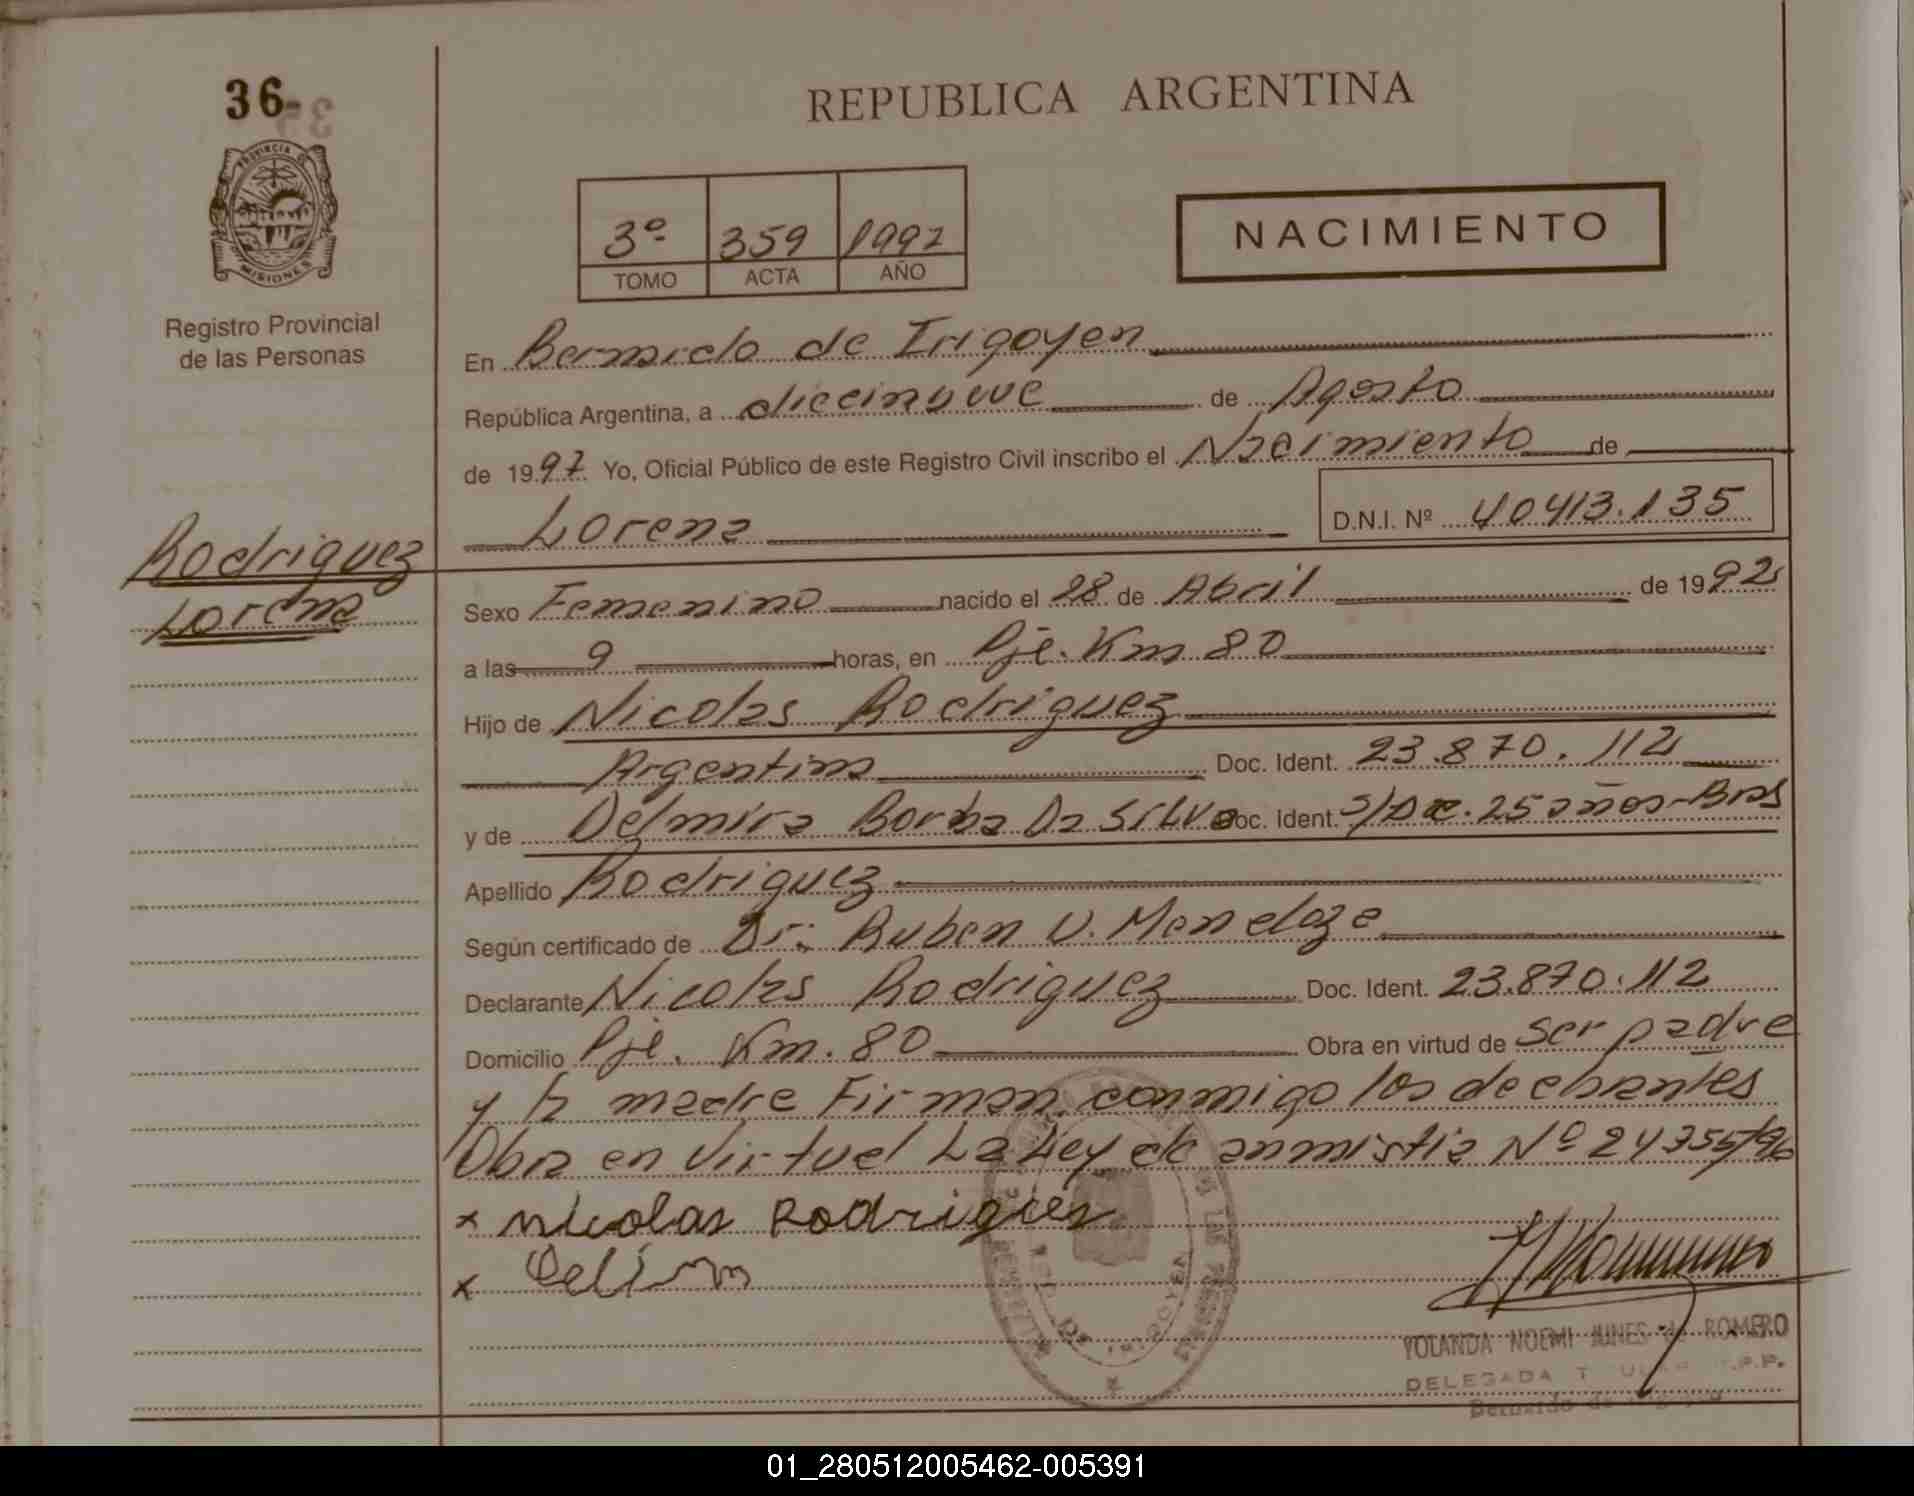 36-
REPUBLICA ARGENTINA
PROVINCIA DE
MISIONES
Registro Provincial
de las Personas
3º 359 1997
TOMO ACTA AÑO
NACIMIENTO
En Bernardo de Irigoyen
República Argentina, a diecinueve de Agosto
de 1997 Yo, Oficial Público de este Registro Civil inscribo el Nacimiento de
Lorena D.N.I. Nº 40413.135
Rodriguez
Lorena
Sexo Femenino nacido el 28 de Abril de 1992
a las 9 horas, en Pje. Km 80
Hijo de Nicolas Rodriguez
Argentina Doc. Ident. 23.870.112
y de Delmira Borba Da Silva Doc. Ident. S/Doc. 25 años-Bras
Apellido Rodriguez
Según certificado de Dr. Ruben V. Mendoza
Declarante Nicolas Rodriguez Doc. Ident. 23.870.112
Domicilio Pje. Km. 80 Obra en virtud de ser padre
y la madre Firman conmigo los declarantes
Obra en Virtud La Ley de anmistia Nº 24755/96
x nicolas Rodrigues
x
YOLANDA NOEMI JUNES de ROMERO
DELEGADA
01_280512005462-005391